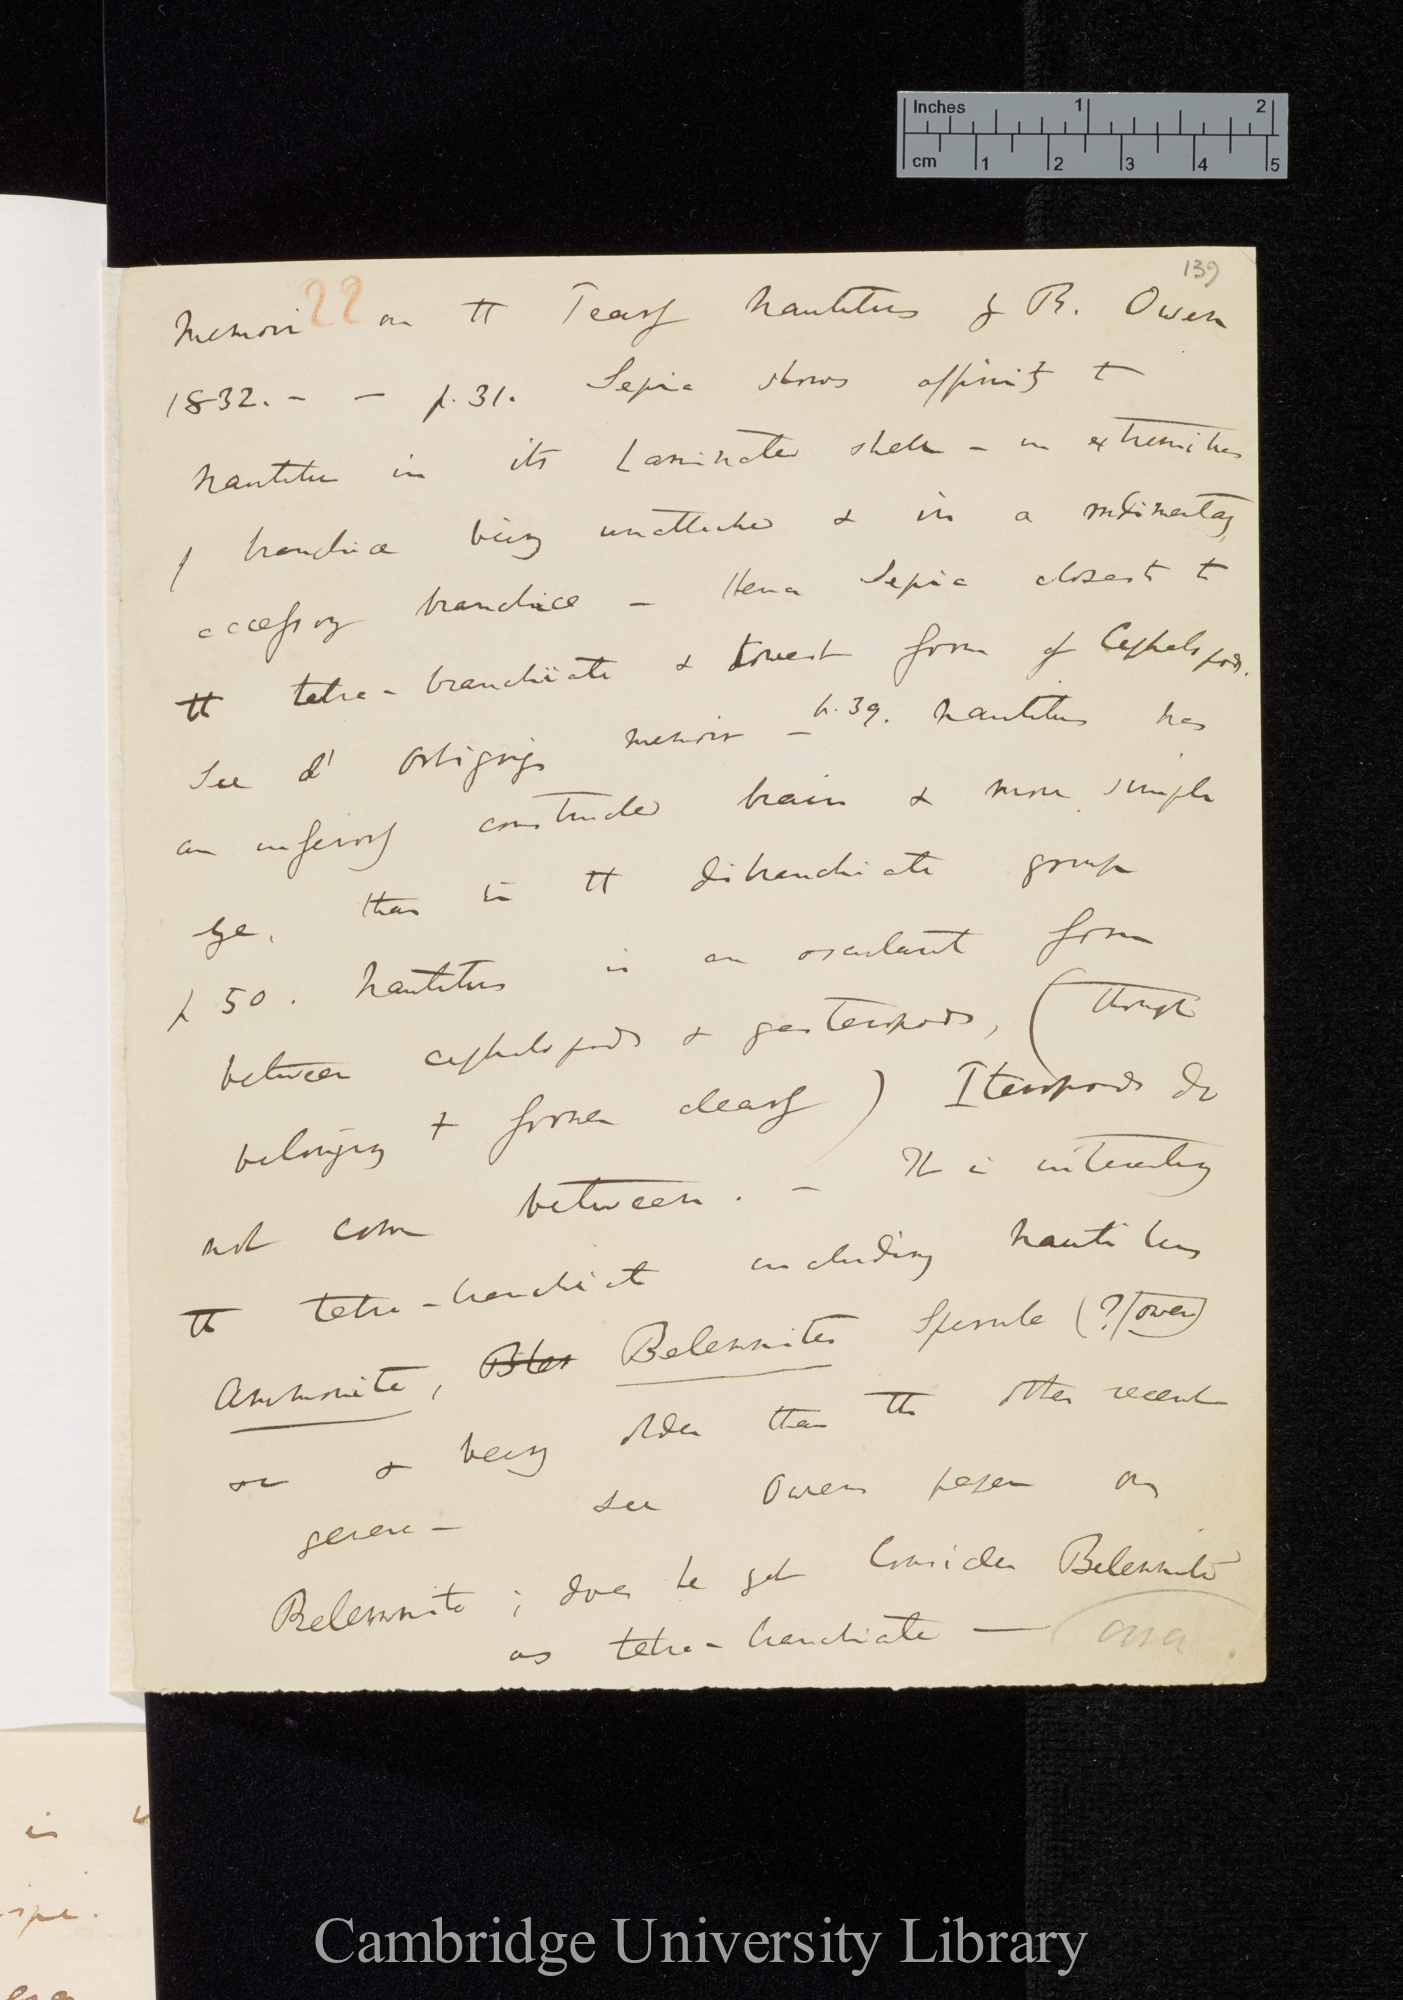 Inches 1 2
cm 1 2 3 4 5
139
22
Memoir on the Pearly Nautilus by R. Owen
1832. – – p. 31. Sepia shows affinity to
Nautilus in its laminated shell – in extremities
of branchiæ being unattached & in a rudimentary
accessory branchiæ – Hence Sepia closest to
the tetra-branchiate & lowest form of Cephalopods.
See d' Orbigny's memoir – p. 39. Nautilus has
an inferiorly constructed brain & more simple
eye, than in the dibranchiate group
p 50. Nautilus is an osculant form
between cephalopods & gasteropods, (though
belonging to former clearly) Pteropods do
not come between. – It is interesting
the tetra-branchiate including Nautilus
Ammonite, Belemnites Spirula (?(Owen)
& being older than the other recent
genera – See Owens paper on
Belemnite ; does he yet consider Belemnite
as tetra-branchiate —
in
Cambridge University Library